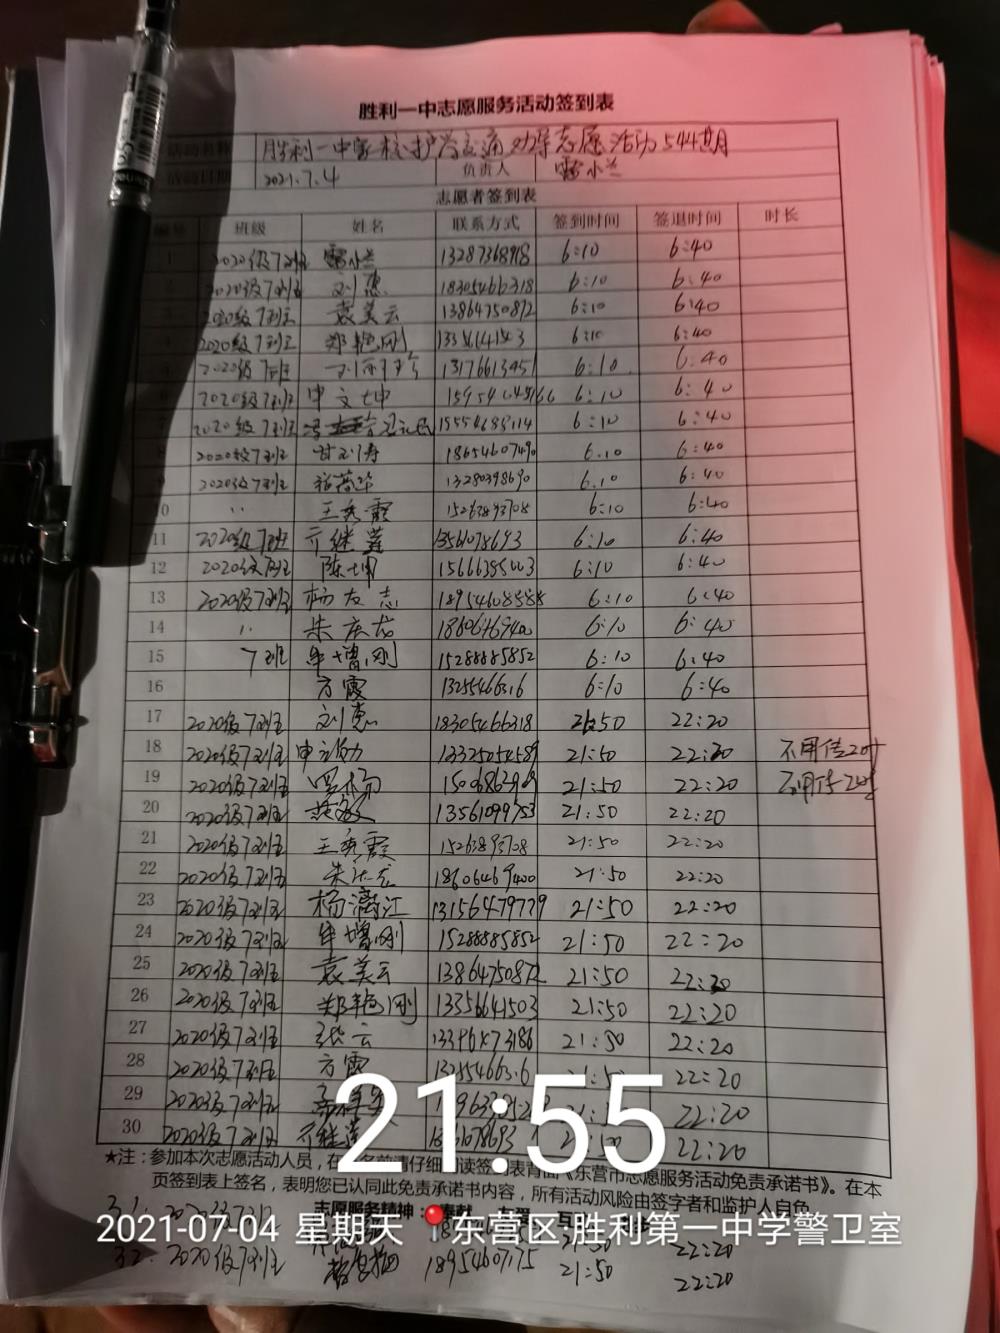 胜利一中志愿服务活动签到表
活动名称 胜利一中家校护学交通劝导志愿活动544期
活动日期 2021.7.4 负责人 雷小兰
志愿者签到表
编号 班级 姓名 联系方式 签到时间 签退时间 时长
1 2020级7班 雷小兰 13287368918 6:10 6:40
2 2020级7班 刘惠 18305466318 6:10 6:40
3 2020级7班 袁美云 13864750872 6:10 6:40
4 2020级7班 郑艳刚 6:10 6:40
5 2020级7班 13176613451 6:10 6.40
6 2020级7班 申文坤 6:10 6:40
7 2020级7班 6:10 6:40
8 2020级7班 18654607490 6.10 6:40
9 2020级7班 13280398690 6.10 6:40
10 王秀霞 15263893708 6:10 6:40
11 2020级7班 亓继莲 13561078693 6:10 6:40
12 2020级7班 陈坤 6:10 6:40
13 2020级7班 杨友志 18954608588 6:10 6:40
14 朱庆龙 18606469400 6:10 6:40
15 7班 牟增刚 15288885852 6:10 6:40
16 方霞 6:10 6:40
17 2020级7班 刘惠 18305466318 21:50 22:20
18 2020级7班 13325054589 21:50 22:20
19 2020级7班 21:50 22:20
20 2020级7班 燕敏 13561099753 21:50 22:20
21 2020级7班 王秀霞 15263893708 21:50 22:20
22 2020级7班 朱庆龙 18606469400 21:50 22:20
23 2020级7班 杨漓江 13156479779 21:50 22:20
24 2020级7班 牟增刚 15288885852 21:50 22:20
25 2020级7班 袁美云 13864750872 21:50 22:20
26 2020级7班 郑艳刚 13356641503 21:50 22:20
27 2020级7班 张云 21:50 22:20
28 2020级7班 方霞 21:50 22:20
29 2020级7班 22:20
30 2020级7班 亓继莲 22:20
21:55
★注：参加本次志愿活动人员，在 名前请仔细 读签 表背面《东营市志愿服务活动免责承诺书》。在本
页签到表上签名，表明您已认同此免责承诺书内容，所有活动风险由签字者和监护人自负
志愿服务精神：奉献
31. 2020级7班 21:50 22:20
2021-07-04 星期天 东营区·胜利第一中学警卫室
32. 2020级7班 18954607175 21:50 22:20